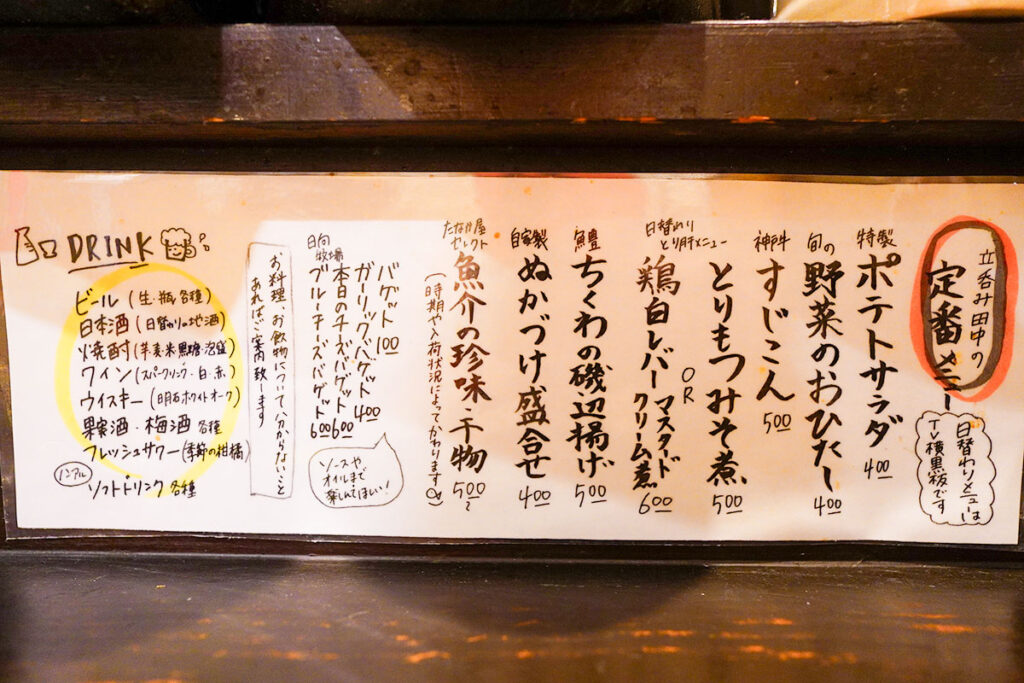 立呑み田中の
定番メニュー
日替わりメニューは
TV横黒板です
特製
ポテトサラダ
400
旬の
野菜のおひたし
400
神戸牛
すじこん
500
日替わり
とり肝メニュー
とりもつみそ煮
OR
鶏白レバー マスタード
クリーム煮
600
鱧
ちくわの磯辺揚げ
500
自家製
ぬかづけ盛合せ
400
たなか屋
セレクト
魚介の珍味・干物
500〜
(時期や入荷状況によってかわります)
バゲット 100
ガーリックバゲット 400
日向
牧場
本日のチーズバゲット 600
ブルーチーズバゲット 600
ソースや
オイルまで
楽しんでほしい!
お料理、お飲物について、分からないこと
あればご案内致します
DRINK
ビール(生・瓶 各種)
日本酒(日替わりの地酒)
焼酎(芋・麦・米・黒糖・泡盛)
ワイン(スパークリング・白・赤)
ウイスキー(明石ホワイトオーク)
果実酒・梅酒 各種
フレッシュサワー(季節の柑橘)
ノンアル
ソフトドリンク 各種